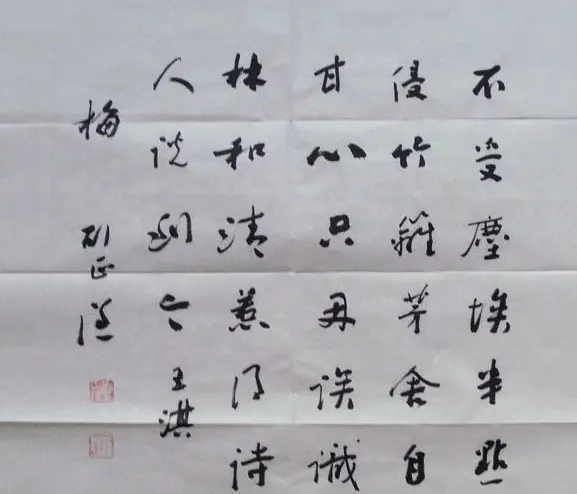 不受塵埃半點
侵竹籬茅舍自
甘心只因误識
林和靖惹得诗
人说到今 王淇
梅